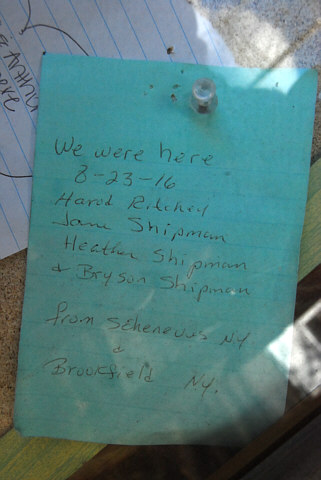 We were here
8-23-16
Harod Ritchey
Jane Shipman
Heather Shipman
& Bryson Shipman
from Schenevus NY
&
Brookfield NY.